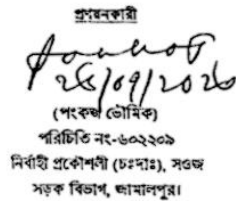 প্রণয়নকারী
২৪/০৭/২০২৩
(পংকজ ভৌমিক)
পরিচিতি নং-৬০২২০৯
নির্বাহী প্রকৌশলী (চঃদাঃ), সওজ
সড়ক বিভাগ, জামালপুর।